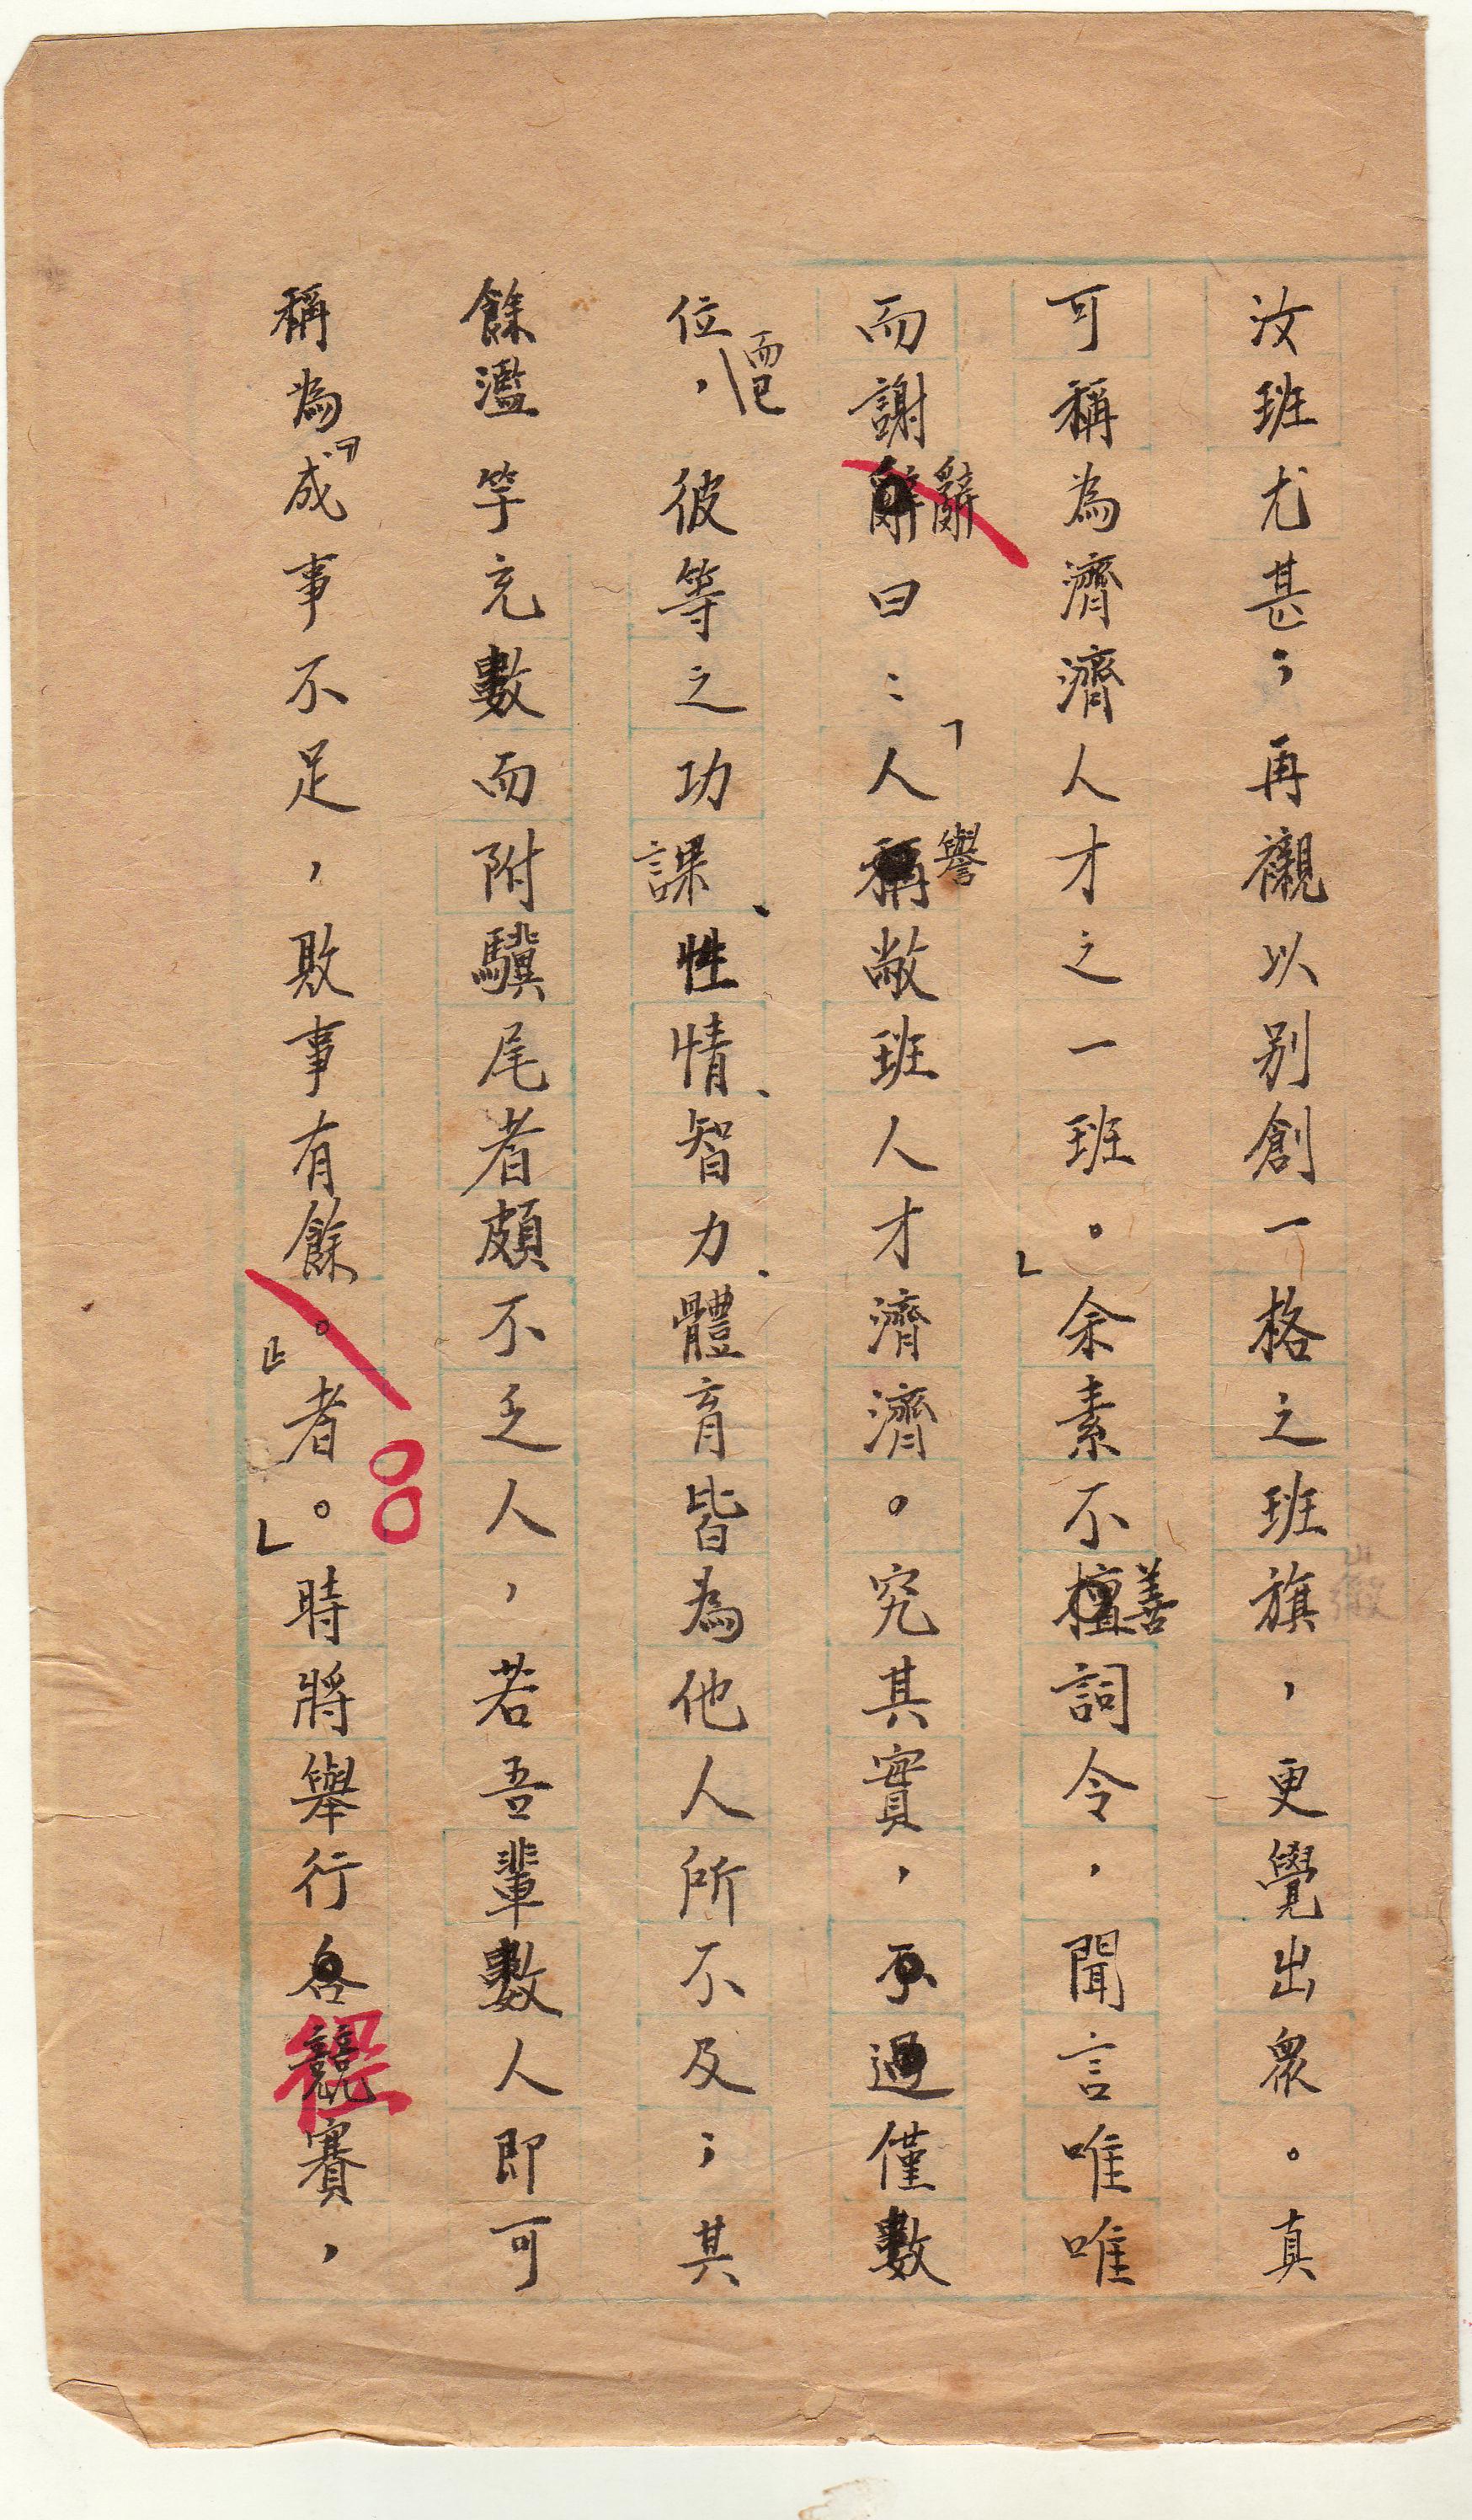 汝班尤甚；再襯以别創一格之班旗，更覺出衆。真
可稱為濟濟人才之一班。」余素不善詞令，聞言唯唯
而謝辭曰：「人譽敝班人才濟濟。究其實，僅數
位而已，彼等之功課、性情、智力、體育皆為他人所不及；其
餘濫竽充數而附驥尾者頗不乏人，若吾輩數人即可
稱為『成事不足，敗事有餘。』者。」時將舉行競賽，